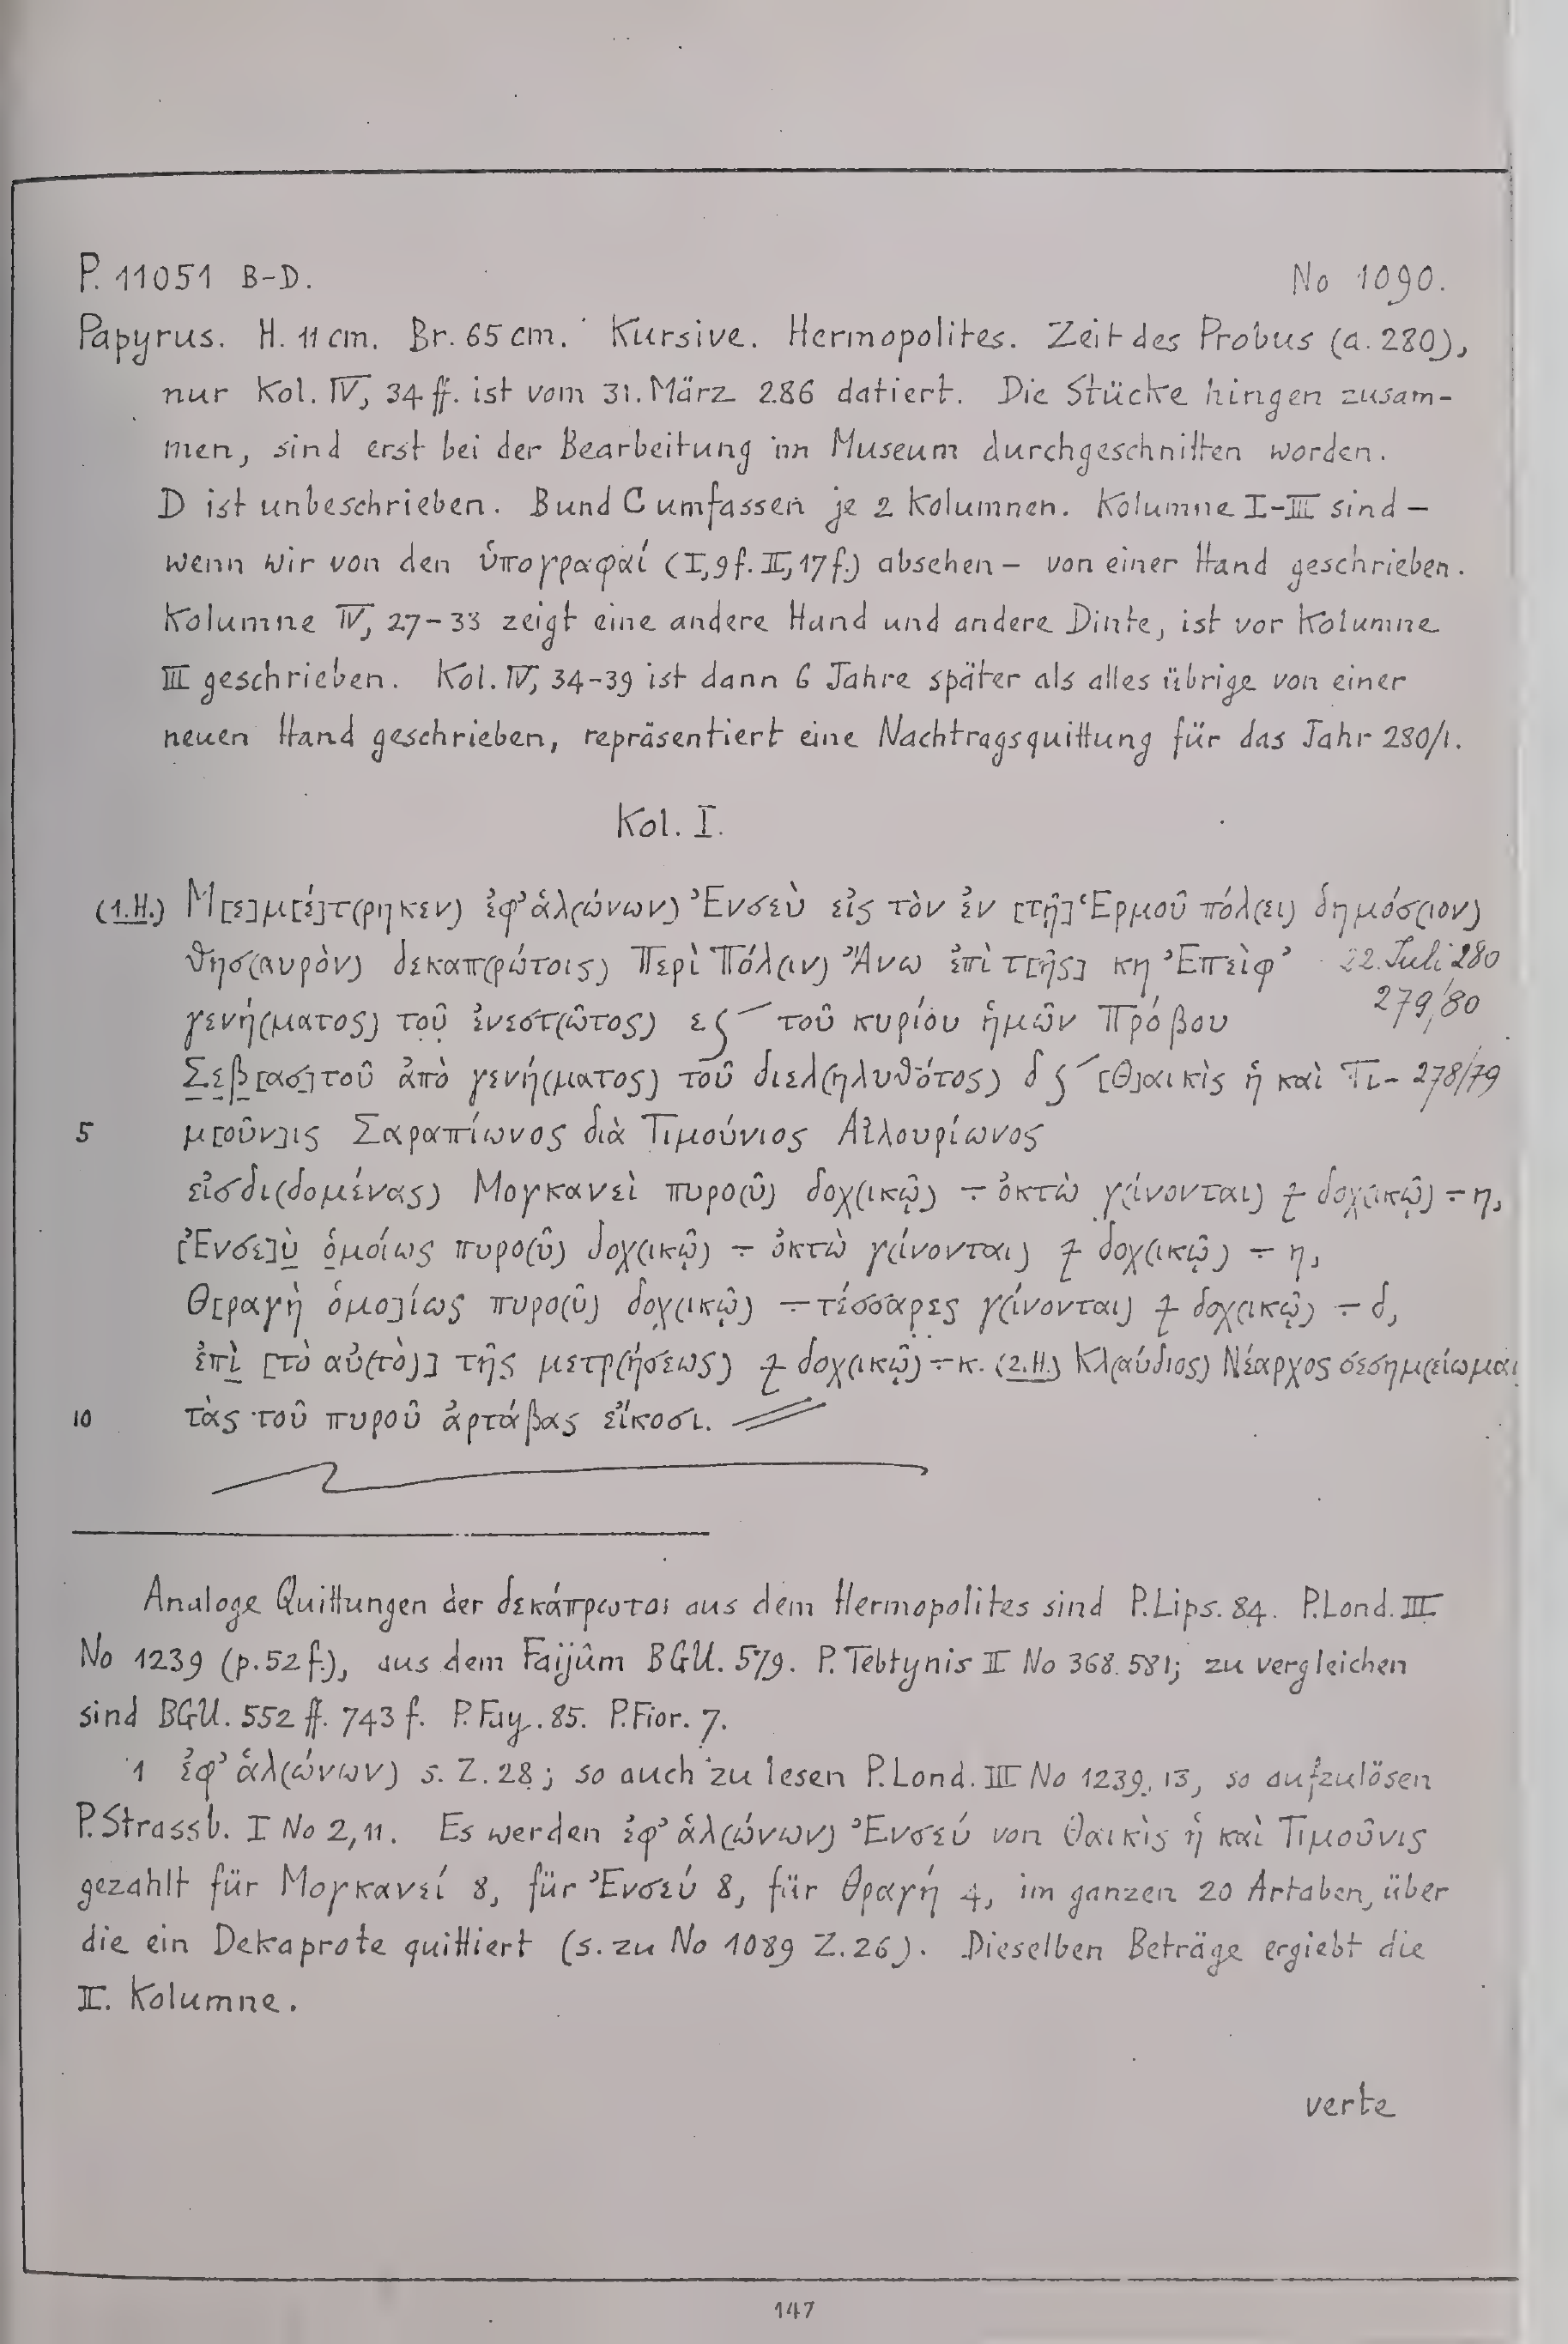 P. 11051 B-D. No 1090.
Papyrus. H. 11 cm. Br. 65 cm. Kursive. Hermopolites. Zeit des Probus (a. 280),
nur Kol. IV, 34 ff. ist vom 31. März 286 datiert. Die Stücke hingen zusam-
men, sind erst bei der Bearbeitung im Museum durchgeschnitten worden.
D ist unbeschrieben. B und C umfassen je 2 Kolumnen. Kolumne I-III sind –
wenn wir von den ὑπογραφαί (I, 9 f. II, 17 f.) absehen – von einer Hand geschrieben.
Kolumne IV, 27-33 zeigt eine andere Hand und andere Dinte, ist vor Kolumne
III geschrieben. Kol. IV, 34-39 ist dann 6 Jahre später als alles übrige von einer
neuen Hand geschrieben, repräsentiert eine Nachtragsquittung für das Jahr 280/1.
Kol. I.
(1.H.) Μ[ε]μ[έ]τ(ρηκεν) ἐφ’ ἁλ(ώνων) Ἐνσεὺ εἰς τὸν ἐν [τῇ] Ἑρμοῦ πόλ(ει) δημόσ(ιον)
θησ(αυρὸν) δεκαπ(ρώτοις) Περὶ Πόλ(ιν) Ἄνω ἐπὶ τ[ῆς] κη Ἐπεὶφ’ 22. Juli 280
γενή(ματος) τοῦ ἐνεστ(ῶτος) ες´ τοῦ κυρίου ἡμῶν Πρόβου 279/80
Σεβ[ασ]τοῦ ἀπὸ γενή(ματος) τοῦ διελ(ηλυθότος) δς´ [Θ]αικὶς ἡ καὶ Τι- 278/79
5 μ[οῦν]ις Σαραπίωνος διὰ Τιμούνιος Αἰλουρίωνος
εἰσδι(δομένας) Μογκανεὶ πυρο(ῦ) δοχ(ικῷ) ÷ ὀκτὼ γ(ίνονται) 𐅷 δοχ(ικῷ) ÷ η,
[Ἐνσε]ὺ ὁμοίως πυρο(ῦ) δοχ(ικῷ) ÷ ὀκτὼ γ(ίνονται) 𐅷 δοχ(ικῷ) ÷ η,
Θ[ραγὴ ὁμο]ίως πυρο(ῦ) δοχ(ικῷ) ÷ τέσσαρες γ(ίνονται) 𐅷 δοχ(ικῷ) ÷ δ,
ἐπὶ [τὸ αὐ(τὸ)] τῆς μετρ(ήσεως) 𐅷 δοχ(ικῷ) ÷ κ. (2.H.) Κλ(αύδιος) Νέαρχος σεσημ(είωμαι)
10 τὰς τοῦ πυροῦ ἀρτάβας εἴκοσι.
Analoge Quittungen der δεκάπρωτοι aus dem Hermopolites sind P.Lips. 84. P.Lond. III
No 1239 (p. 52 f.), aus dem Faijûm BGU. 579. P. Tebtynis II No 368. 581; zu vergleichen
sind BGU. 552 ff. 743 f. P.Fay. 85. P.Fior. 7.
1 ἐφ’ ἁλ(ώνων) s. Z. 28; so auch zu lesen P.Lond. III No 1239, 13, so aufzulösen
P.Strassb. I No 2, 11. Es werden ἐφ’ ἁλ(ώνων) Ἐνσεύ von Θαικὶς ἡ καὶ Τιμοῦνις
gezahlt für Μογκανεί 8, für Ἐνσεύ 8, für Θραγή 4, im ganzen 20 Artaben, über
die ein Dekaprote quittiert (s. zu No 1089 Z. 26). Dieselben Beträge ergiebt die
II. Kolumne.
verte
147